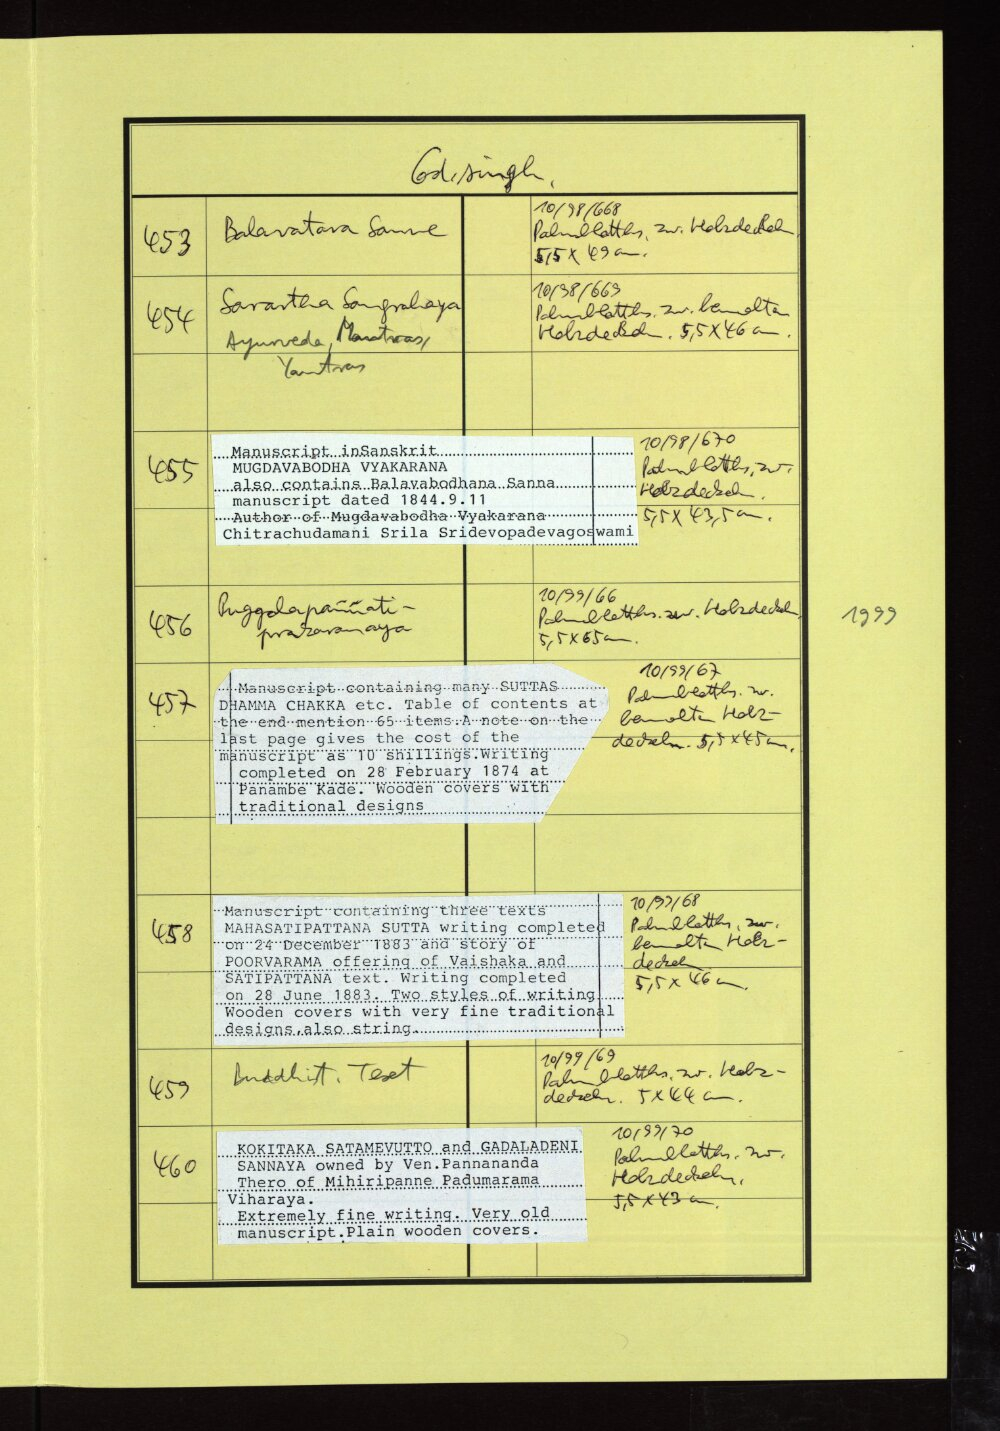 Cod. singh.
453
Balavatara Sanne
10/98/668
Palmblatths. zw. Holzdeckeln
5,5 x 49 cm.
454
Sarartha Sangrahaya
Ayurveda, Mantras,
Yantras
10/98/669
Palmblatths. zw. bemalten
Holzdeckeln. 5,5 x 46 cm.
455
Manuscript inSanskrit
MUGDAVABODHA VYAKARANA
also contains Balavabodhana Sanna
manuscript dated 1844.9.11
Author of Mugdavabodha Vyakarana
Chitrachudamani Srila Sridevopadevagoswami
10/98/670
Palmblatths. zw.
Holzdeckeln.
5,5 x 43,5 cm.
456
Puggalapaññati-
prakaranaya
10/99/66
Palmblatths. zw. Holzdeckeln
5,5 x 65 cm.
1999
457
Manuscript containing many SUTTAS
DHAMMA CHAKKA etc. Table of contents at
the end mention 65 items.A note on the
last page gives the cost of the
manuscript as 10 shillings.Writing
completed on 28 February 1874 at
Panambe Kade. Wooden covers with
traditional designs
10/99/67
Palmblatths. zw.
bemalten Holz-
deckeln. 5,5 x 45 cm.
458
Manuscript containing three texts
MAHASATIPATTANA SUTTA writing completed
on 24 December 1883 and story of
POORVARAMA offering of Vaishaka and
SATIPATTANA text. Writing completed
on 28 June 1883. Two styles of writing
Wooden covers with very fine traditional
designs,also string.
10/99/68
Palmblatths. zw.
bemalten Holz-
deckeln
5,5 x 46 cm.
459
Buddhist. Text
10/99/69
Palmblatths. zw. Holz-
deckeln. 5 x 44 cm.
460
KOKITAKA SATAMEVUTTO and GADALADENI
SANNAYA owned by Ven.Pannananda
Thero of Mihiripanne Padumarama
Viharaya.
Extremely fine writing. Very old
manuscript.Plain wooden covers.
10/99/70
Palmblatths. zw.
Holzdeckeln.
5,5 x 43 cm.